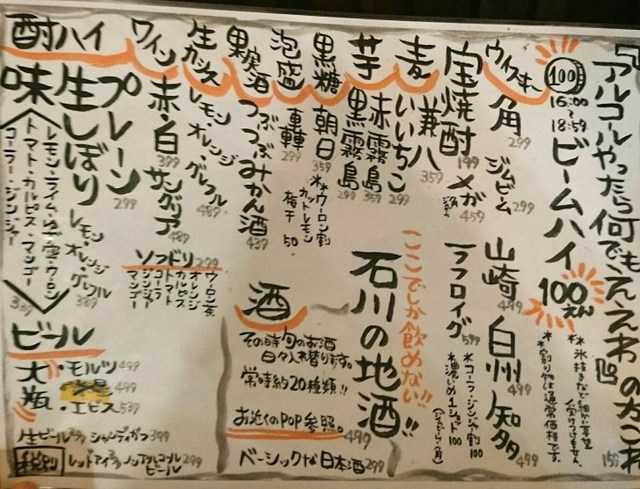 『アルコールやったら何でもええわ』の方に
100
16:00〜18:59
ビームハイ 100えん
ウイスキー
角 299
ジムビーム 299
山崎 499
白州 499
知多 499
宝焼酎 199
メガ 459
ラフロイグ 599
*コーラ・ジンジャー割 100
*濃いめ 1ショット 100
麦
兼八 359
いいちこ
芋
赤霧島 359
黒霧島 299
ここでしか飲めない!!
石川の地酒!! 499
黒糖
朝日 359
*ウーロン割
カットレモン
梅干 50
泡盛
轟 299
果実酒
つぶつぶみかん酒 439
生カシス
レモン
オレンジ
グレフル 489
ワイン
赤・白 399
サングリア 489
酎ハイ
プレーン 299
生しぼり
レモン・オレンジ・グレフル 389
味
トマト・カルピス・マンゴー
コーラ・ジンジャー
ソフドリ 299
ウーロン茶
オレンジ
カルピス
トマト
コーラ
ジンジャー
マンゴー
酒
その時旬のお酒
日々入れ替ります。
常時約20種類!!
お近くのPOP参照。
ベーシックな日本酒 299
ビール
大瓶
・モルツ 499
499
・エビス 539
生ビール
シャンディガフ 399
税別
レッドアイ
ノンアルコールビール 299